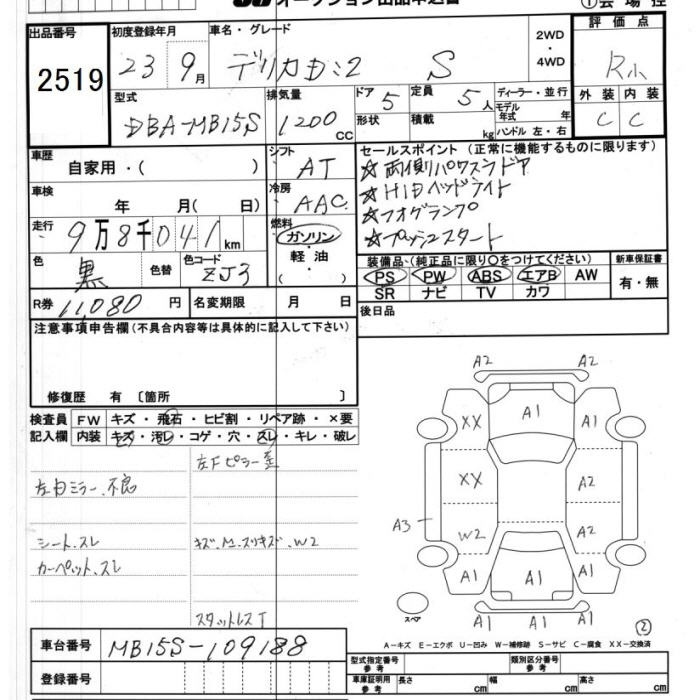 オークション出品申込書
①会場控
出品番号
2519
初度登録年月
23 9月
車名・グレード
デリカD:2 S
2WD
・
4WD
評価点
R小
外装 内装
C C
型式
DBA-MB15S
排気量
1200 CC
ドア 5
形状
定員 5人
積載 kg
ディーラー・並行
モデル年式 年
ハンドル 左・右
車歴
自家用・( )
シフト
AT
冷房
AAC
車検
年 月( 日)
走行
9万8千041km
燃料
ガソリン
・
軽油
・
( )
色
黒
色替
色コード
ZJ3
R券 11,080 円
名変期限 月 日
セールスポイント (正常に機能するものに限ります)
☆両側パワスラドア
☆HIDヘッドライト
☆フォグランプ
☆プッシュスタート
装備品(純正品に限り○をつけてください)
PS PW ABS エアB AW
SR ナビ TV カワ
新車保証書
有・無
後日品
注意事項申告欄(不具合内容等は具体的に記入して下さい)
修復歴 有 〔箇所 〕
検査員記入欄
FW キズ・飛石・ヒビ割・リペア跡・×要
内装 キズ・汚レ・コゲ・穴・スレ・キレ・破レ
左Fピラー歪
左ドアミラー、不良
シート、スレ
キズ、M、スリキズ、W2
カーペット、スレ
スタットレスT
A2
A2
XX
A1
A1
XX
A2
A3
W2
A2
A1
A1
A1
A1
A1
A1
スペア
②
A-キズ E-エクボ U-凹み W-補修跡 S-サビ C-腐食 XX-交換済
車台番号
MB15S-109188
登録番号
型式指定番号
参考
類別区分番号
参考
車庫証明用
参考
長さ cm
幅 cm
高さ cm